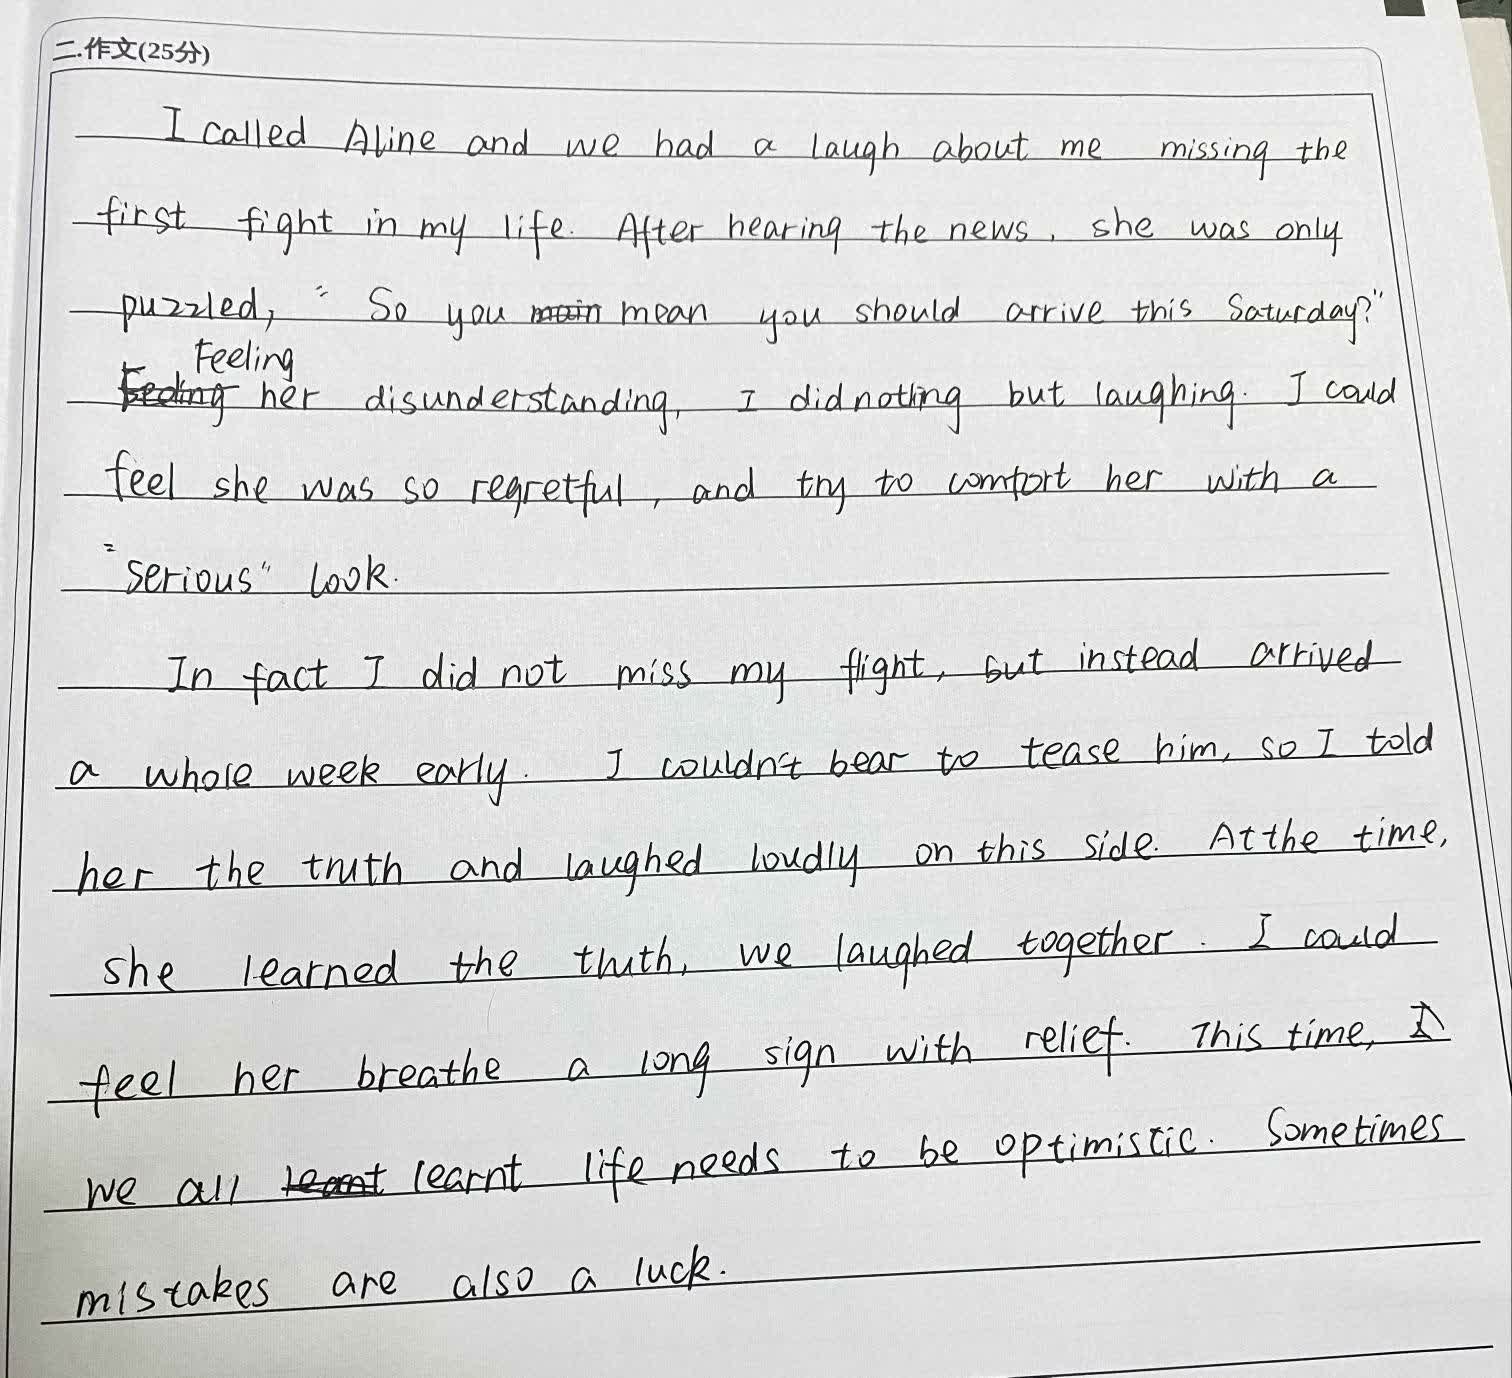 二.作文(25分)
I called Aline and we had a laugh about me missing the
first fight in my life. After hearing the news, she was only
puzzled, "So you mean you should arrive this Saturday?"
Feeling
her disunderstanding, I did nothing but laughing. I could
feel she was so regretful, and try to comfort her with a
"serious" look.
In fact I did not miss my flight, but instead arrived
a whole week early. I couldn't bear to tease him, so I told
her the truth and laughed loudly on this side. At the time,
she learned the thuth, we laughed together. I could
feel her breathe a long sign with relief. This time,
we all learnt life needs to be optimistic. Sometimes
mistakes are also a luck.